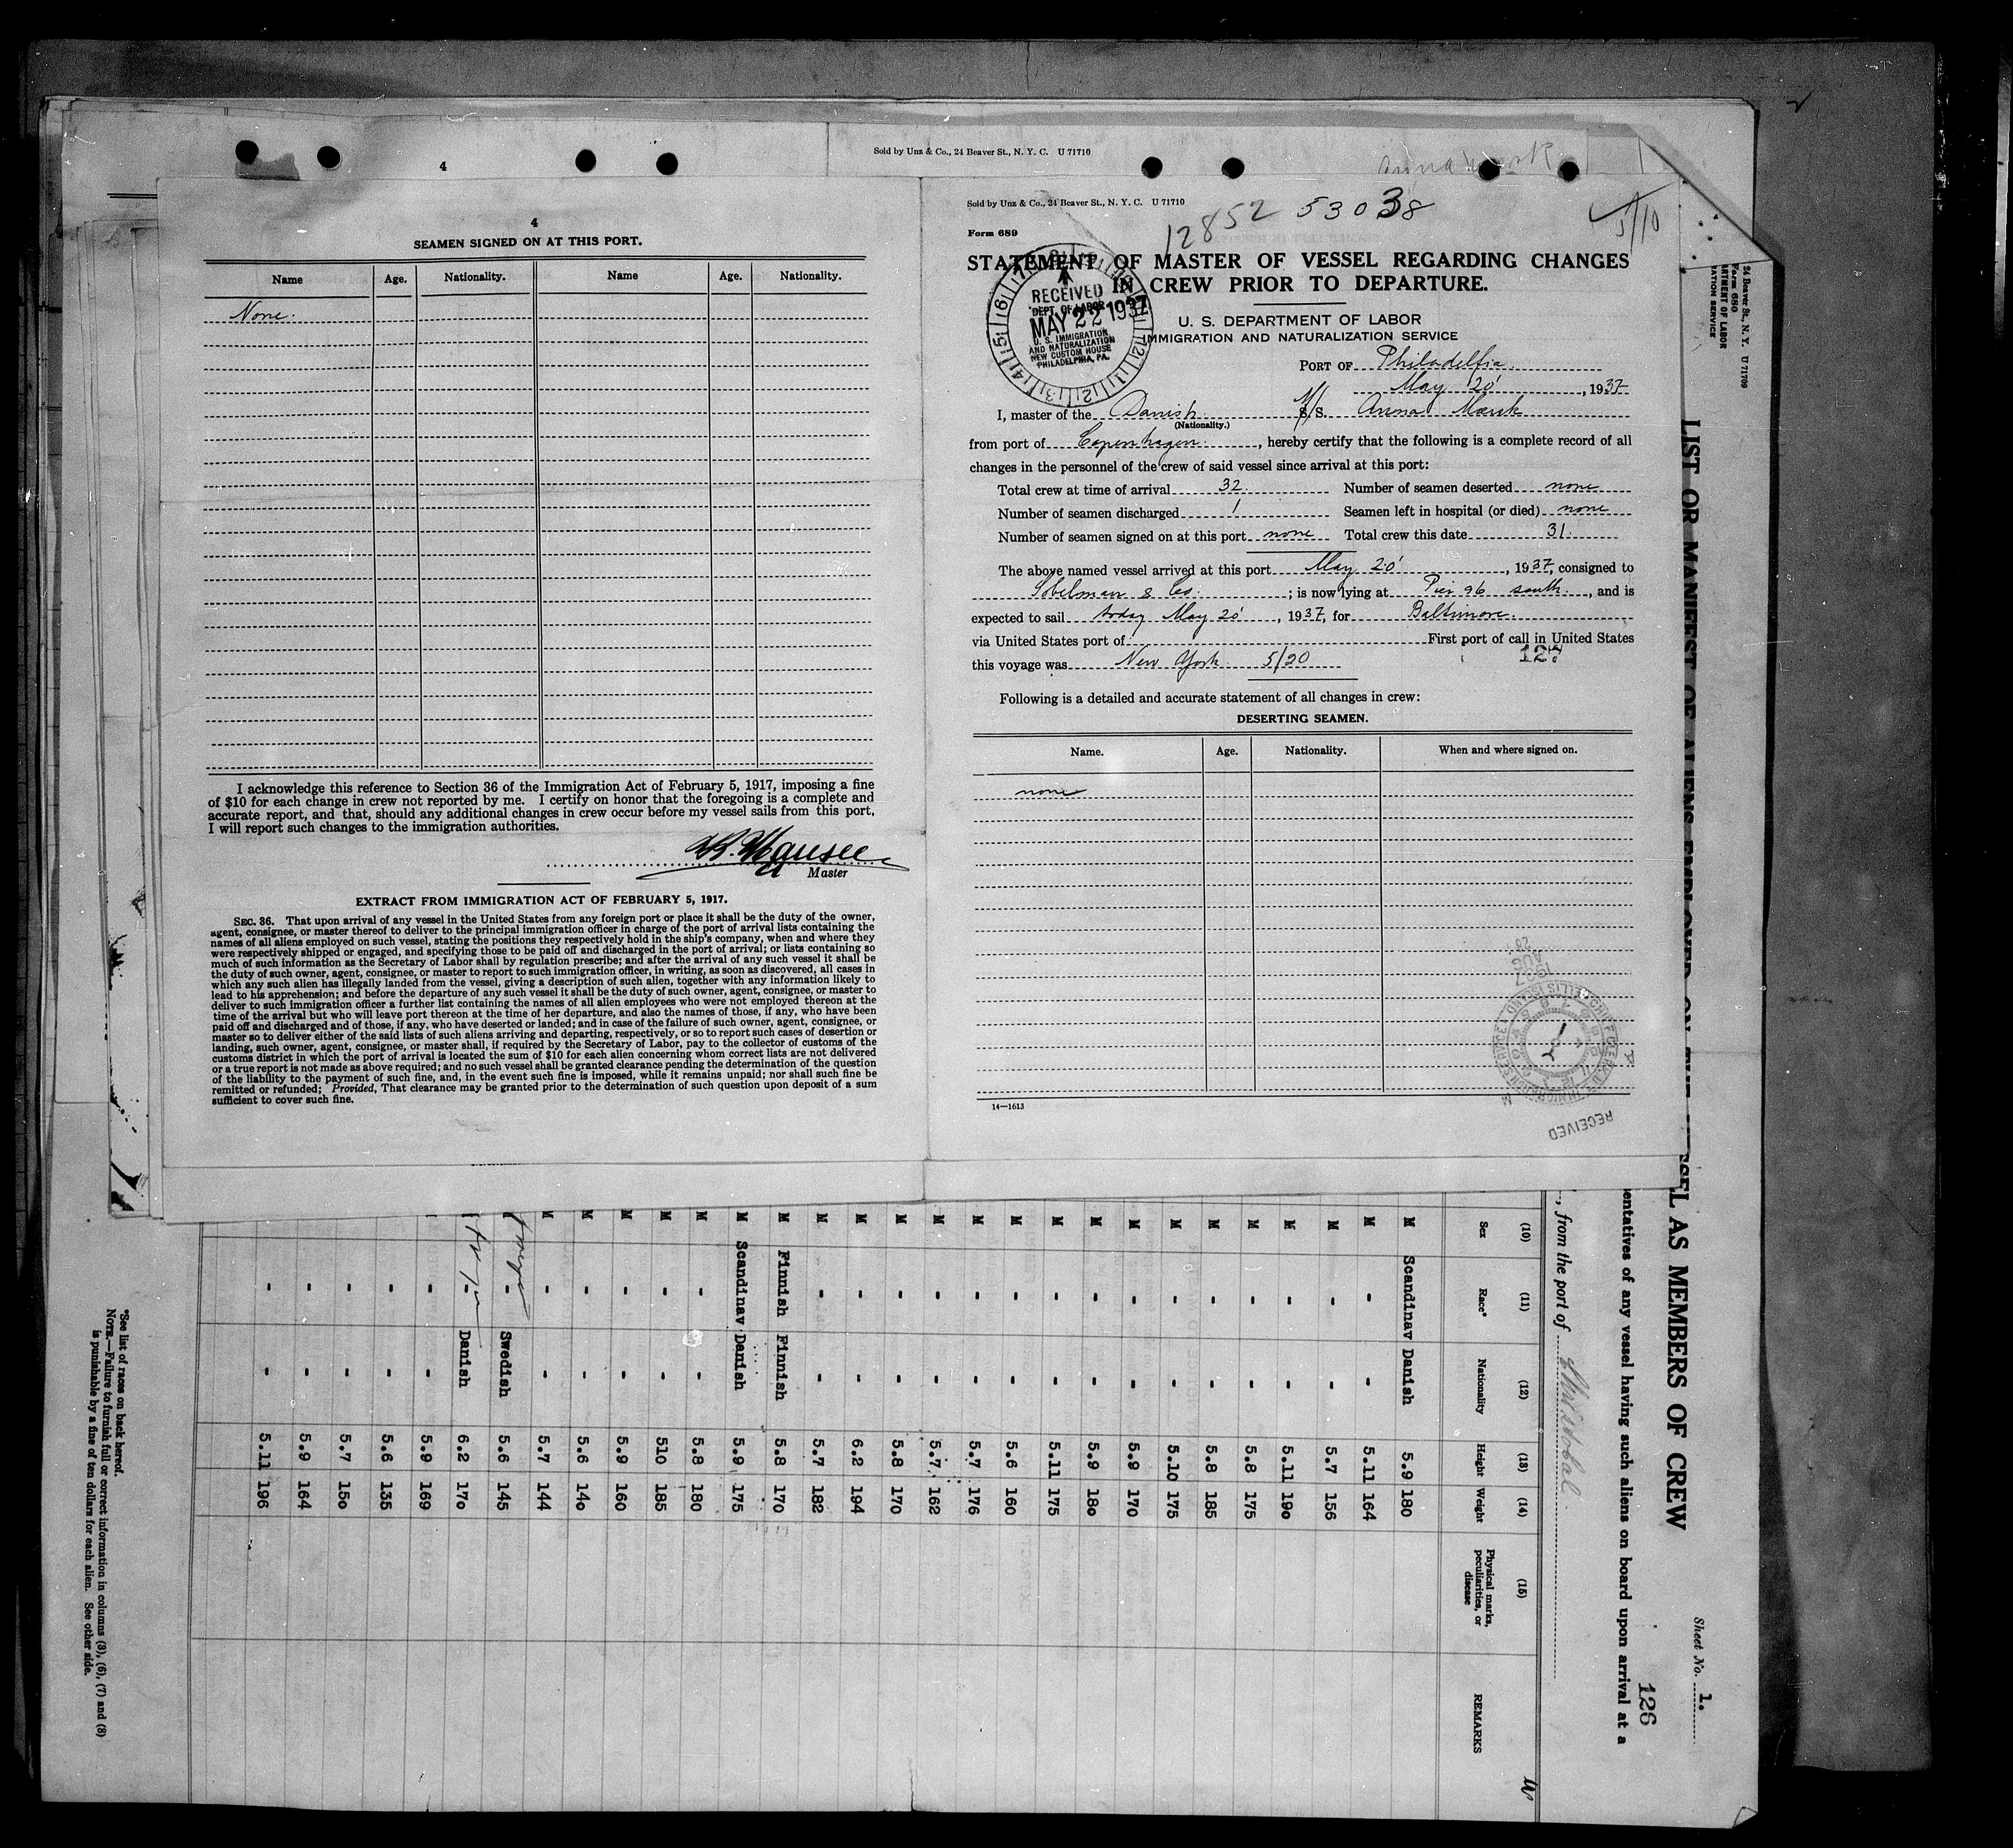 Sold by Unz & Co., 24 Beaver St., N. Y. C. U 71710
4
4
SEAMEN SIGNED ON AT THIS PORT.
Name Age. Nationality. Name Age. Nationality.
None.
I acknowledge this reference to Section 36 of the Immigration Act of February 5, 1917, imposing a fine
of $10 for each change in crew not reported by me. I certify on honor that the foregoing is a complete and
accurate report, and that, should any additional changes in crew occur before my vessel sails from this port,
I will report such changes to the immigration authorities.
Master
EXTRACT FROM IMMIGRATION ACT OF FEBRUARY 5, 1917.
SEC. 36. That upon arrival of any vessel in the United States from any foreign port or place it shall be the duty of the owner,
agent, consignee, or master thereof to deliver to the principal immigration officer in charge of the port of arrival lists containing the
names of all aliens employed on such vessel, stating the positions they respectively hold in the ship's company, when and where they
were respectively shipped or engaged, and specifying those to be paid off and discharged in the port of arrival; or lists containing so
much of such information as the Secretary of Labor shall by regulation prescribe; and after the arrival of any such vessel it shall be
the duty of such owner, agent, consignee, or master to report to such immigration officer, in writing, as soon as discovered, all cases in
which any such alien has illegally landed from the vessel, giving a description of such alien, together with any information likely to
lead to his apprehension; and before the departure of any such vessel it shall be the duty of such owner, agent, consignee, or master to
deliver to such immigration officer a further list containing the names of all alien employees who were not employed thereon at the
time of the arrival but who will leave port thereon at the time of her departure, and also the names of those, if any, who have been
paid off and discharged and of those, if any, who have deserted or landed; and in case of the failure of such owner, agent, consignee, or
master so to deliver either of the said lists of such aliens arriving and departing, respectively, or so to report such cases of desertion or
landing, such owner, agent, consignee, or master shall, if required by the Secretary of Labor, pay to the collector of customs of the
customs district in which the port of arrival is located the sum of $10 for each alien concerning whom correct lists are not delivered
or a true report is not made as above required; and no such vessel shall be granted clearance pending the determination of the question
of the liability to the payment of such fine, and, in the event such fine is imposed, while it remains unpaid; nor shall such fine be
remitted or refunded; Provided, That clearance may be granted prior to the determination of such question upon deposit of a sum
sufficient to cover such fine.
Sold by Unz & Co., 24 Beaver St., N. Y. C. U 71710
12852 53038
5/10
Form 689
STATEMENT OF MASTER OF VESSEL REGARDING CHANGES
IN CREW PRIOR TO DEPARTURE.
RECEIVED
DEPT. OF LABOR
MAY 22 1937
U. S. IMMIGRATION
AND NATURALIZATION
NEW CUSTOM HOUSE
PHILADELPHIA, PA.
U. S. DEPARTMENT OF LABOR
IMMIGRATION AND NATURALIZATION SERVICE
PORT OF Philadelfia
May 20', 1937
I, master of the Danish M/S. Anna Mærsk
(Nationality.)
from port of Copenhagen, hereby certify that the following is a complete record of all
changes in the personnel of the crew of said vessel since arrival at this port:
Total crew at time of arrival 32. Number of seamen deserted none
Number of seamen discharged 1 Seamen left in hospital (or died) none
Number of seamen signed on at this port none Total crew this date 31.
The above named vessel arrived at this port May 20', 1937, consigned to
Sobelman & Co.; is now lying at Pier 96 south, and is
expected to sail today May 20', 1937, for Baltimore.
via United States port of First port of call in United States
this voyage was New York 5/20 127
Following is a detailed and accurate statement of all changes in crew:
DESERTING SEAMEN.
Name. Age. Nationality. When and where signed on.
none
14—1613
1937
AUG
RECEIVED
24 Beaver St., N. Y. U 71709
Form 680
RTMENT OF LABOR
ATION SERVICE
LIST OR MANIFEST OF ALIENS EMPLOYED ON THE
SSEL AS MEMBERS OF CREW
Sheet No. 1.
126
entatives of any vessel having such aliens on board upon arrival at a
, from the port of
(10) (11) (12) (13) (14) (15)
Sex Race* Nationality Height Weight Physical marks, peculiarities, or disease REMARKS
M Scandinav Danish 5.9 180
M - - 5.11 164
M - - 5.7 156
M - - 5.11 190
M - - 5.8 175
M - - 5.8 185
M - - 5.10 175
M - - 5.9 170
M - - 5.9 180
M - - 5.11 175
M - - 5.6 160
M - - 5.7 176
M - - 5.7 162
M - - 5.8 170
M - - 6.2 194
M - - 5.7 182
M Finnish Finnish 5.8 170
M Scandinav Danish 5.9 175
M - - 5.8 180
M - - 510 185
M - - 5.9 160
M - - 5.6 140
M - - 5.7 144
- Swedish 5.6 145
- Danish 6.2 170
- - 5.9 169
- - 5.6 135
- - 5.7 150
- - 5.9 164
- - 5.11 196
*See list of races on back hereof.
NOTE.—Failure to furnish full or correct information in columns (3), (6), (7) and (8)
is punishable by a fine of ten dollars for each alien. See other side.